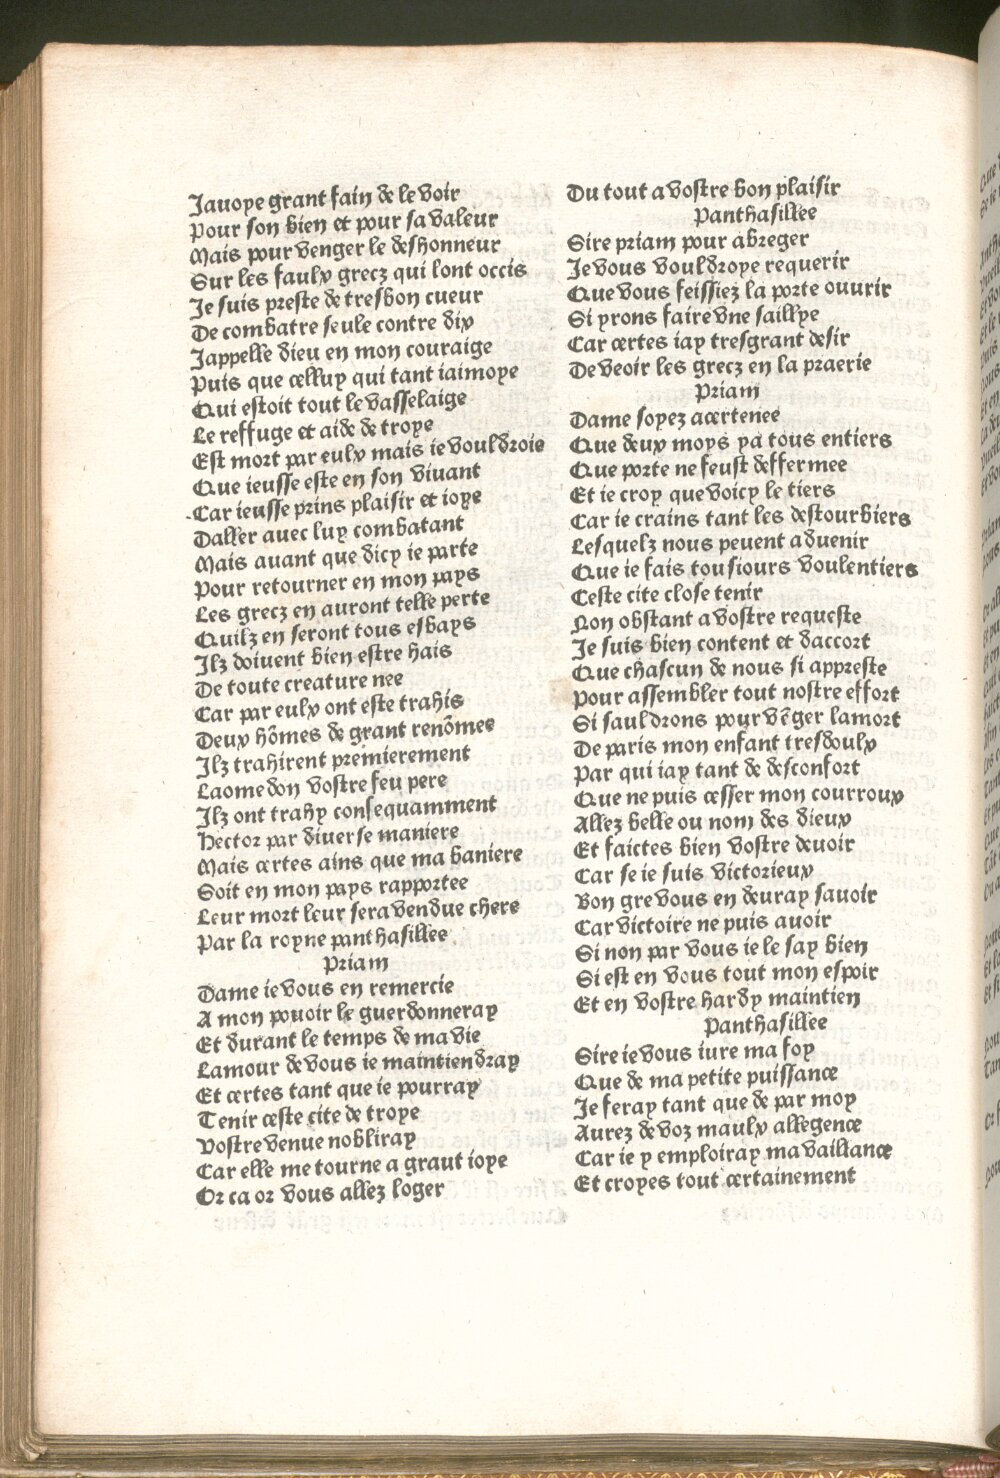 Jauoye grant fain de le voir
Pour son bien et pour sa valeur
Mais pour venger le deshonneur
Sur les faulx grecz qui lont occis
Je suis preste de tresbon cueur
De combatre seule contre dix
Jappelle dieu en mon couraige
Puis que celluy qui tant iaimoye
Qui estoit tout le vasselaige
Le reffuge et aide de troye
Est mort par eulx mais ie vouldroie
Que ieusse este en son viuant
Car ieusse prins plaisir et ioye
Daller auec luy combatant
Mais auant que dicy ie parte
Pour retourner en mon pays
Les grecz en auront telle perte
Quilz en seront tous esbays
Ilz doiuent bien estre hais
De toute creature nee
Car par eulx ont este trahis
Deux hōmes de grant renōmee
Ilz trahirent premierement
Laomedon vostre feu pere
Ilz ont trahy consequamment
Hector par diuerse maniere
Mais certes ains que ma baniere
Soit en mon pays rapportee
Leur mort leur sera vendue chere
Par la royne panthasillee
Priam
Dame ie vous en remercie
A mon pouoir le guerdonneray
Et durant le temps de ma vie
Lamour de vous ie maintiendray
Et certes tant que ie pourray
Tenir ceste cite de troye
Vostre venue nobliray
Car elle me tourne a graut ioye
Or ca or vous allez loger
Du tout a vostre bon plaisir
Panthasillee
Sire priam pour abreger
Je vous vouldroye requerir
Que vous feissiez la porte ouurir
Si yrons faire vne saillye
Car certes iay tresgrant desir
De veoir les grecz en la praerie
Priam
Dame soyez acertenee
Que deux moys ya tous entiers
Que porte ne feust deffermee
Et ie croy que voicy le tiers
Car ie crains tant les destourbiers
Lesquelz nous peuent aduenir
Que ie fais tousiours voulentiers
Ceste cite close tenir
Non obstant a vostre requeste
Je suis bien content et daccort
Que chascun de nous si appreste
Pour assembler tout nostre effort
Si sauldrons pour vēger lamort
De paris mon enfant tresdoulx
Par qui iay tant de desconfort
Que ne puis cesser mon courroux
Allez belle ou nom des dieux
Et faictes bien vostre deuoir
Car se ie suis victorieux
Bon gre vous en deuray sauoir
Car victoire ne puis auoir
Si non par vous ie le say bien
Si est en vous tout mon espoir
Et en vostre hardy maintien
Panthasillee
Sire ie vous iure ma foy
Que de ma petite puissance
Je feray tant que de par moy
Aurez de voz maulx allegence
Car ie y emploiray ma vaillance
Et croyes tout certainement